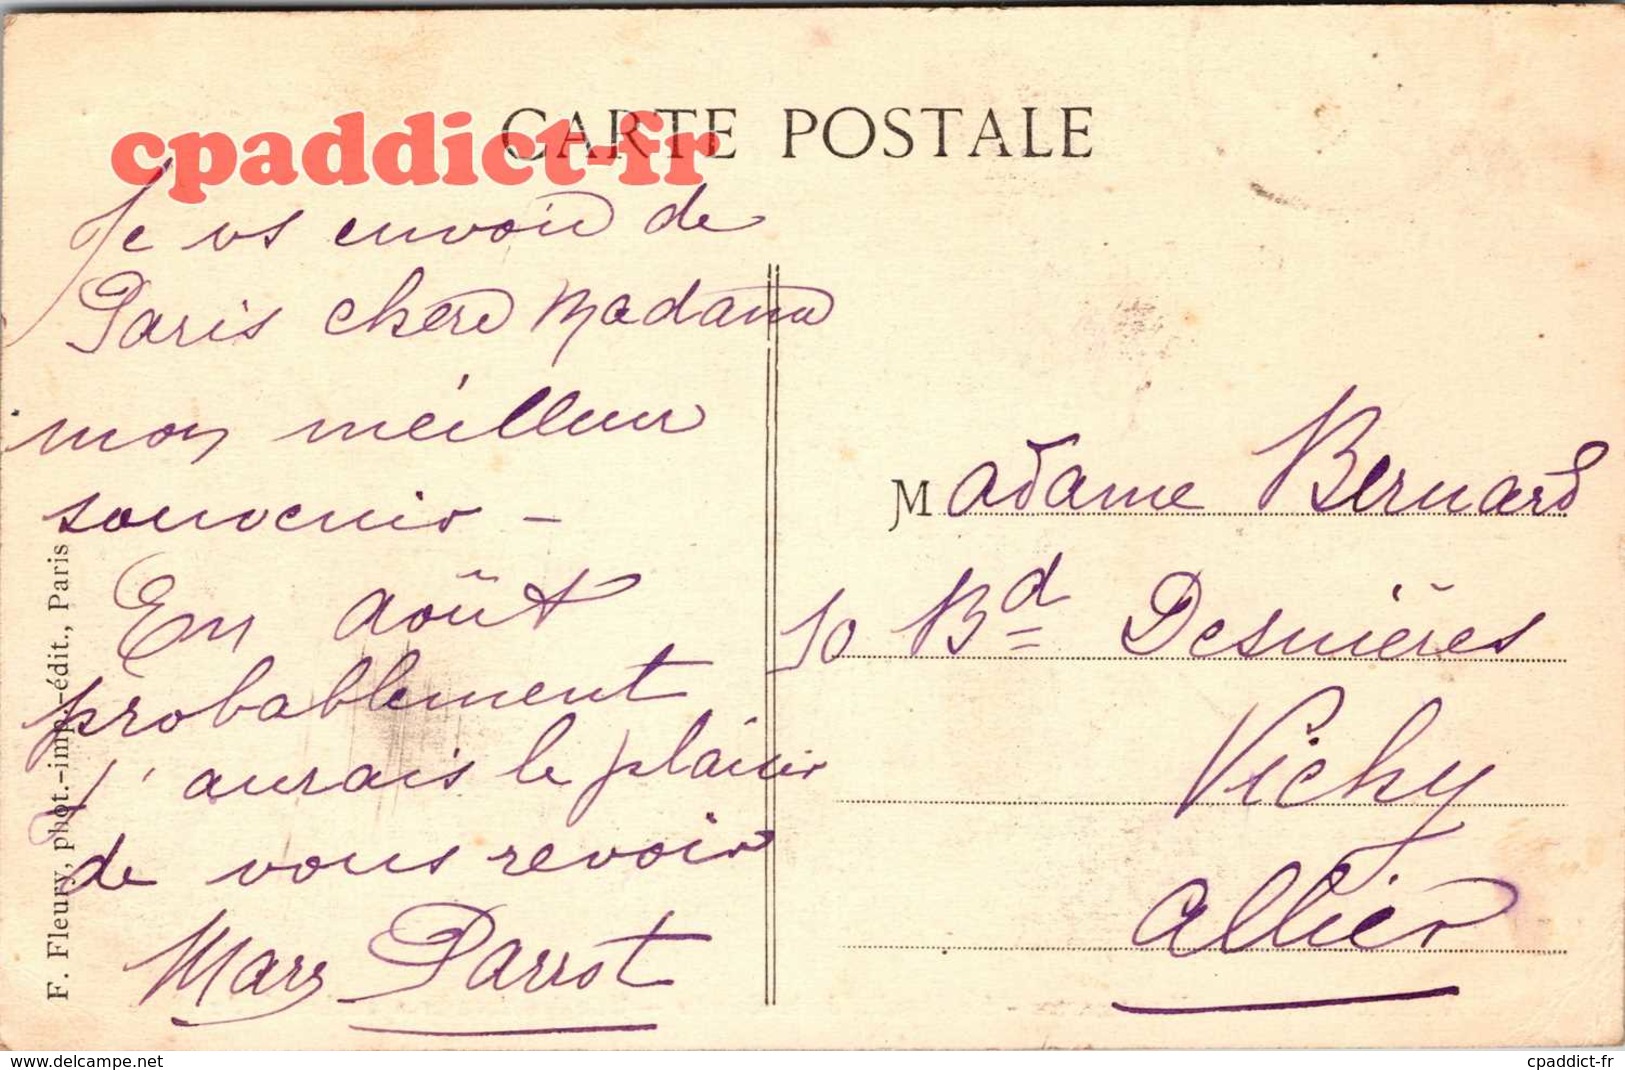 CARTE POSTALE
cpaddict-fr
Je vs envoie de
Paris chère Madame
mon meilleur
souvenir -
En août
probablement
j'aurais le plaisir
de vous revoir
Parrot
Madame Bernard
Bd Desnières
Vichy
Allier
F. Fleury, phot.-imp.-édit., Paris
www.delcampe.net
cpaddict-fr